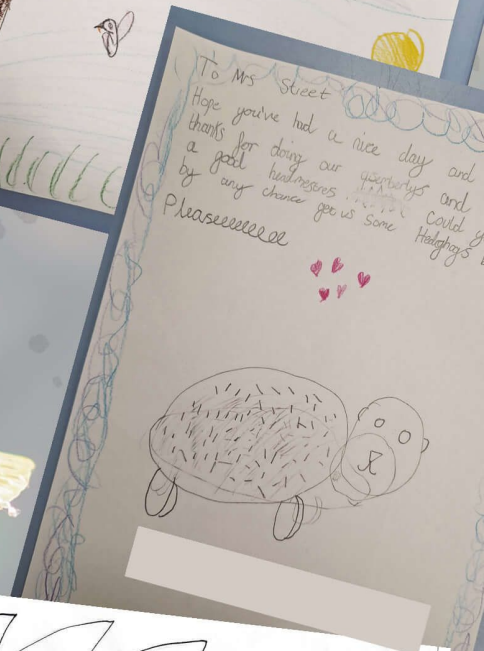 To Mrs Street
Hope you've had a nice day and
thanks for doing our and
a good could y
by any chance get us some Hedgehogs
Pleaseeeeeeee